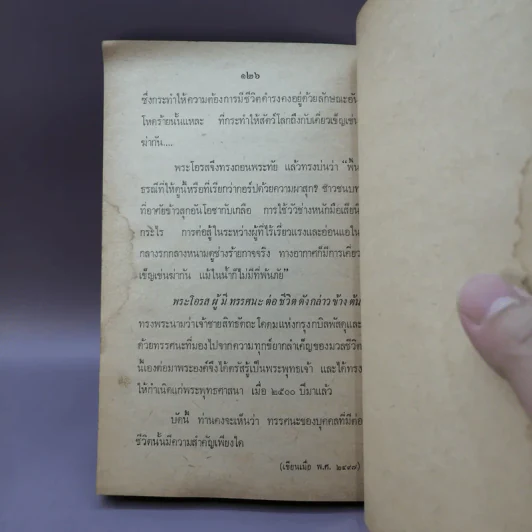 ๑๒๖
ซึ่งกระทำให้ความต้องการมีชีวิตดำรงคงอยู่ด้วยลักษณะอัน
โหดร้ายนั้นแหละ ที่กระทำให้สัตว์โลกถึงกับเคี่ยวเข็ญเข่น
ฆ่ากัน....
พระโอรสจึงทรงถอนพระทัย แล้วทรงบ่นว่า "พื้น
ธรณีที่ให้ดูนี้หรือที่เรียกว่ากอร์ปด้วยความผาสุก? ชาวชนบท
ที่อาศัยข้าวสุกอันโอชากับเกลือ การใช้วัวช่างหนักมือเสียนี่
กระไร การต่อสู้ในระหว่างผู้ที่ไร้เรี่ยวแรงและอ่อนแอใน
กลางรกกลางหนามดูช่างร้ายกาจจริง ทางอากาศก็มีการเคี่ยว
เข็ญเข่นฆ่ากัน แม้ในน้ำก็ไม่มีที่พ้นภัย"
พระโอรส ผู้ มี ทรรศนะ ต่อ ชีวิต ดังกล่าว ข้าง ต้น
ทรงพระนามว่าเจ้าชายสิทธัตถะโคดมแห่งกรุงกบิลพัสดุและ
ด้วยทรรศนะที่มองไปจากความทุกข์ยากลำเค็ญของมวลชีวิต
นี้เองต่อมาพระองค์จึงได้ตรัสรู้เป็นพระพุทธเจ้า และได้ทรง
ให้กำเนิดแก่พระพุทธศาสนา เมื่อ ๒๕๐๐ ปีมาแล้ว
บัดนี้ ท่านคงจะเห็นว่า ทรรศนะของบุคคลที่มีต่อ
ชีวิตนั้นมีความสำคัญเพียงใด
(เขียนเมื่อ พ.ศ. ๒๔๙๘)